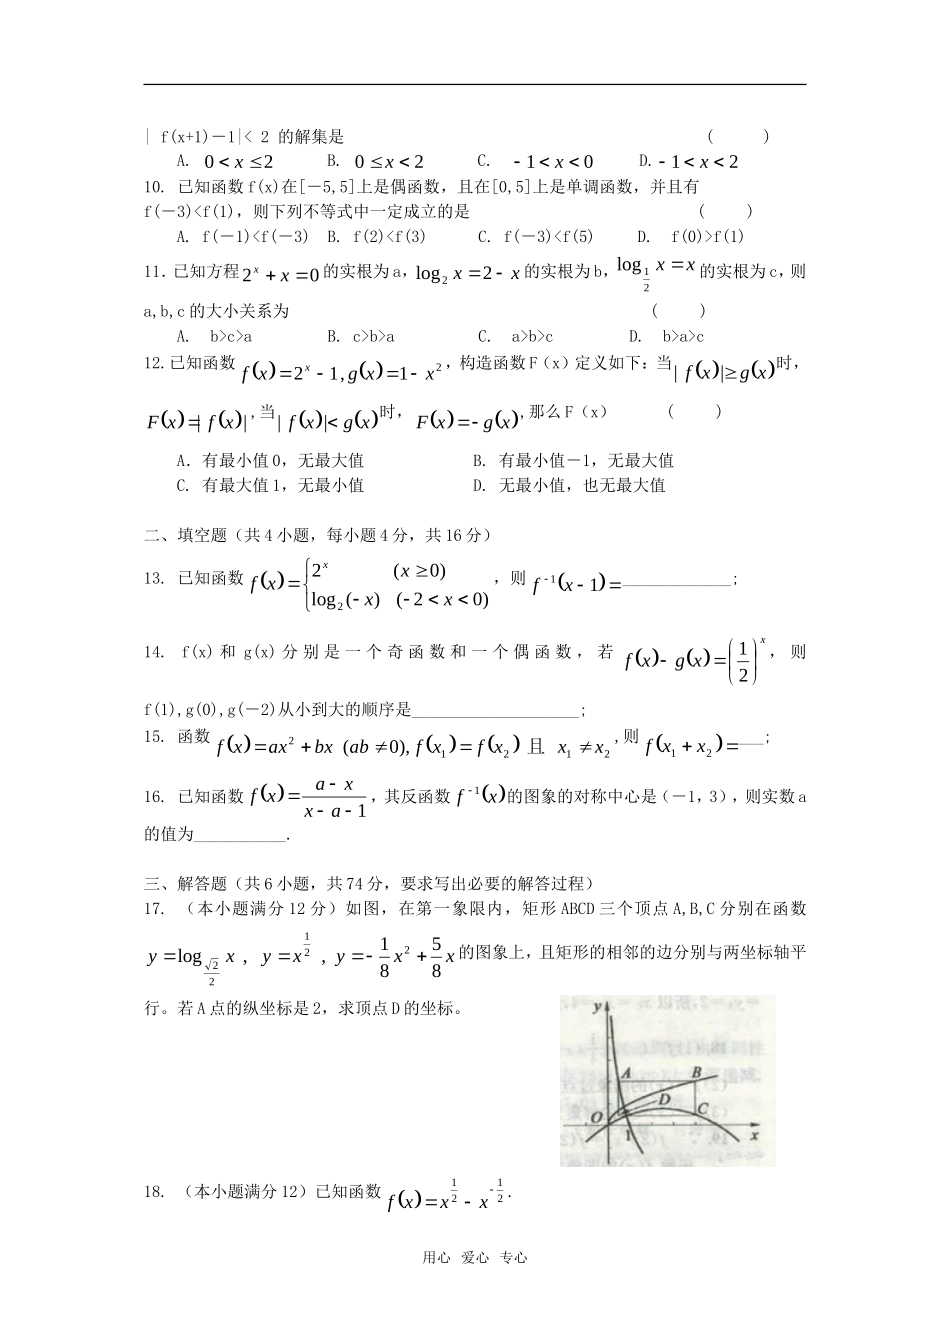 | f(x+1)－1|< 2 的解集是 ( )
A. 0＜x≤2 B. 0≤x＜2 C. －1＜x＜0 D.－1＜x＜2
10. 已知函数 f(x)在[－5,5]上是偶函数，且在[0,5]上是单调函数，并且有
f(－3)<f(1)，则下列不等式中一定成立的是 ( )
A. f(－1)<f(－3) B. f(2)<f(3) C. f(－3)<f(5) D. f(0)>f(1)
11．已知方程 2^x + x = 0 的实根为 a，log_2 x = 2 - x 的实根为 b，log_{1/2} x = x 的实根为 c，则
a,b,c 的大小关系为 ( )
A. b>c>a B. c>b>a C. a>b>c D. b>a>c
12.已知函数 f(x)=2^x-1, g(x)=1-x^2，构造函数 F（x）定义如下：当|f(x)|≥g(x)时，
F(x)=|f(x)|,当|f(x)|<g(x)时， F(x)=-g(x),那么 F（x） ( )
A．有最小值 0，无最大值 B. 有最小值－1，无最大值
C. 有最大值 1，无最小值 D. 无最小值，也无最大值
二、填空题（共 4 小题，每小题 4 分，共 16 分）
13. 已知函数 f(x)={2^x (x≥0) log_2(-x) (-2<x<0)，则 f^{-1}(x-1)=_____________;
14. f(x) 和 g(x) 分 别 是 一 个 奇 函 数 和 一 个 偶 函 数 ， 若 f(x)-g(x)=(1/2)^x ， 则
f(1),g(0),g(－2)从小到大的顺序是____________________;
15. 函数 f(x)=ax^2+bx (ab≠0), f(x_1)=f(x_2) 且 x_1≠x_2 ,则 f(x_1+x_2)=___;
16. 已知函数 f(x)=(a-x)/(x-a-1)，其反函数 f^{-1}(x)的图象的对称中心是（－1，3），则实数 a
的值为___________.
三、解答题（共 6 小题，共 74 分，要求写出必要的解答过程）
17. （本小题满分 12 分）如图，在第一象限内，矩形 ABCD 三个顶点 A,B,C 分别在函数
y=log_{√2/2} x , y=x^{1/2} , y=-1/8 x^2+5/8 x 的图象上，且矩形的相邻的边分别与两坐标轴平
行。若 A 点的纵坐标是 2，求顶点 D 的坐标。
y
A B
D C
O 1 x
18. （本小题满分 12）已知函数 f(x)=x^{1/2}-x^{-1/2}.
用心 爱心 专心